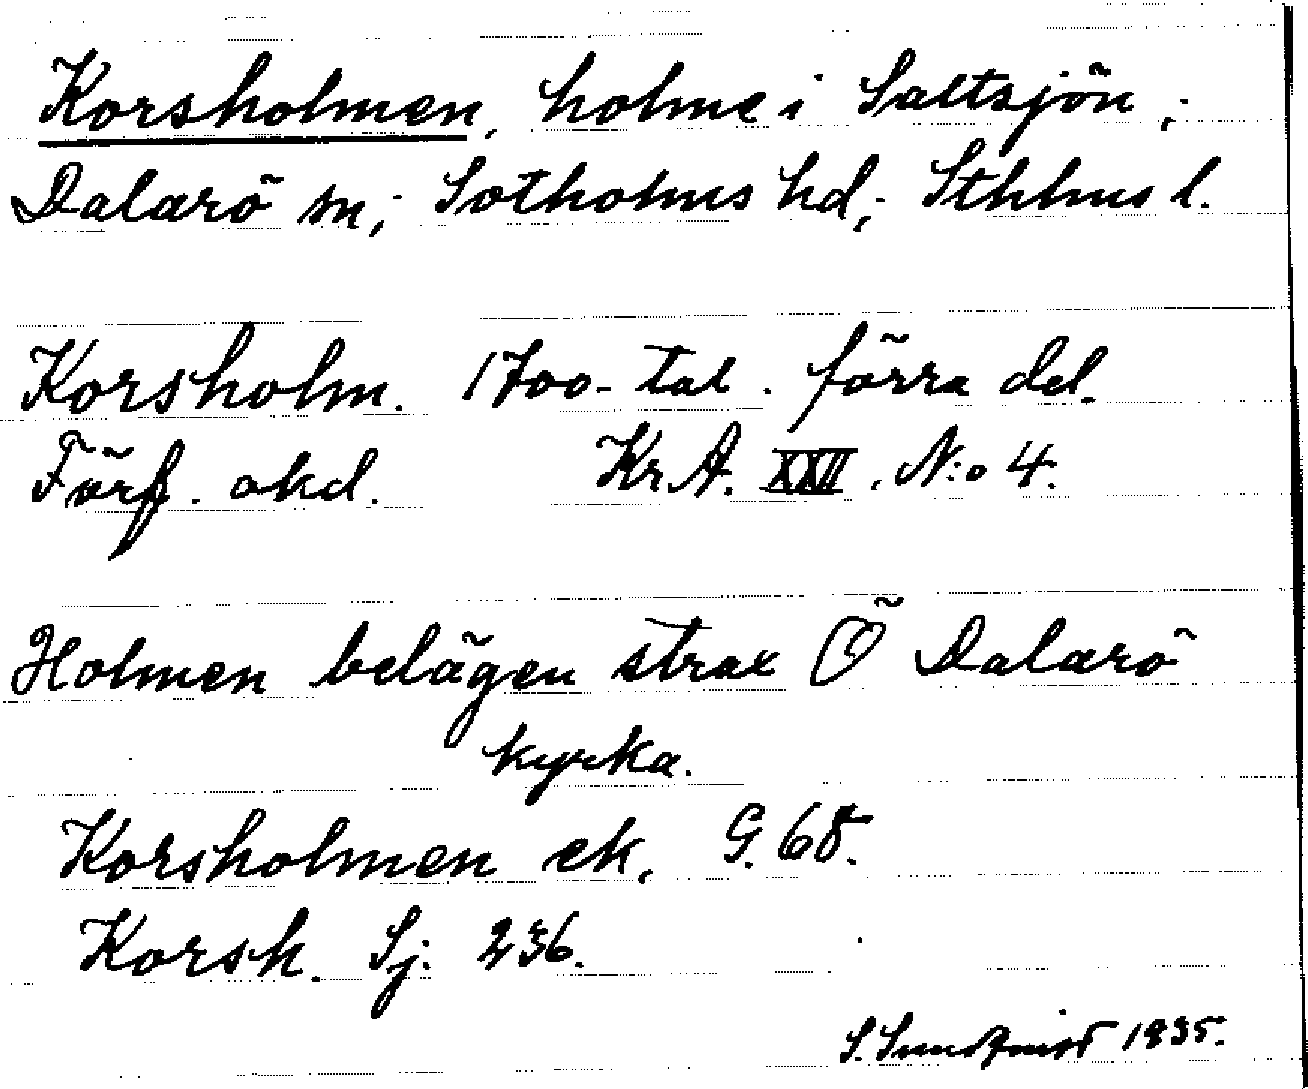 Korsholmen, holme i Saltsjön;
Dalarö sn; Sotholms hd; Sthlms l.
Korsholm. 1700-tal. förra del.
Förf. okd. Kr.A. XXVI, N:o 4.
Holmen belägen strax Ö Dalarö
kyrka.
Korsholmen ek. G. 68.
Korsh. Sj. 236.
S. Sundqvist 1935.